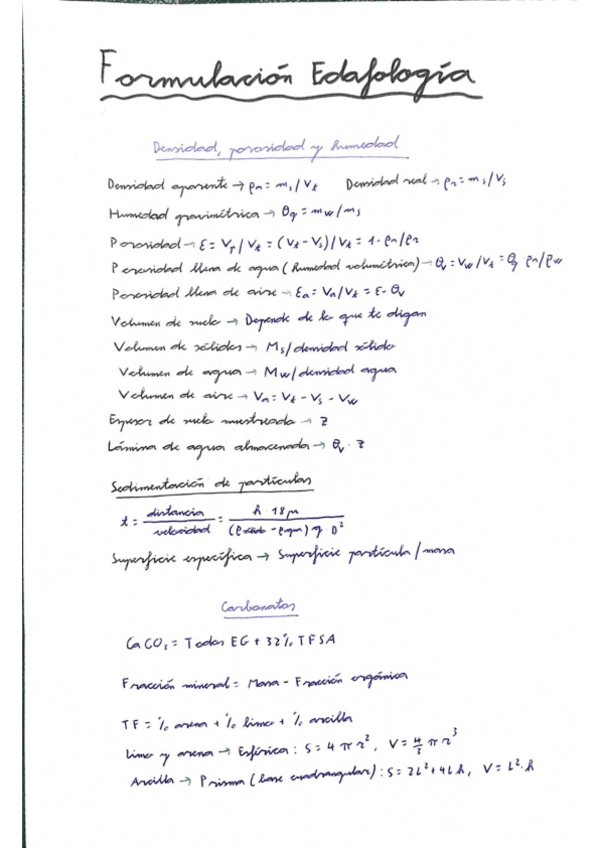 Formulación Edafología
Densidad, porosidad y humedad
Densidad aparente → ρa = ms/Vt Densidad real → ρr = ms/Vs
Humedad gravimétrica → θg = mw/ms
Porosidad → ε = Vp/Vt = (Vt - Vs)/Vt = 1 - ρa/ρr
Porosidad llena de agua (humedad volumétrica) → θv = Vw/Vt = θg ρa/ρw
Porosidad llena de aire → εa = Va/Vt = ε - θv
Volumen de suelo → Depende de lo que te digan
Volumen de sólidos → Ms/densidad sólido
Volumen de agua → Mw/densidad agua
Volumen de aire → Va = Vt - Vs - Vw
Espesor de suelo muestreado → z
Lámina de agua almacenada → θv · z
Sedimentación de partículas
t = distancia/velocidad = h · 18μ/(ρsólido - ρagua) g D²
Superficie específica → Superficie partícula/masa
Carbonatos
CaCO3 = Todos EG + 32% TFSA
Fracción mineral = Masa - Fracción orgánica
TF = % arena + % limo + % arcilla
Limo y arena → Esférica: S = 4 π r², V = 4/3 π r³
Arcilla → Prisma (base cuadrangular): S = 2L² + 4Lh, V = L² · h